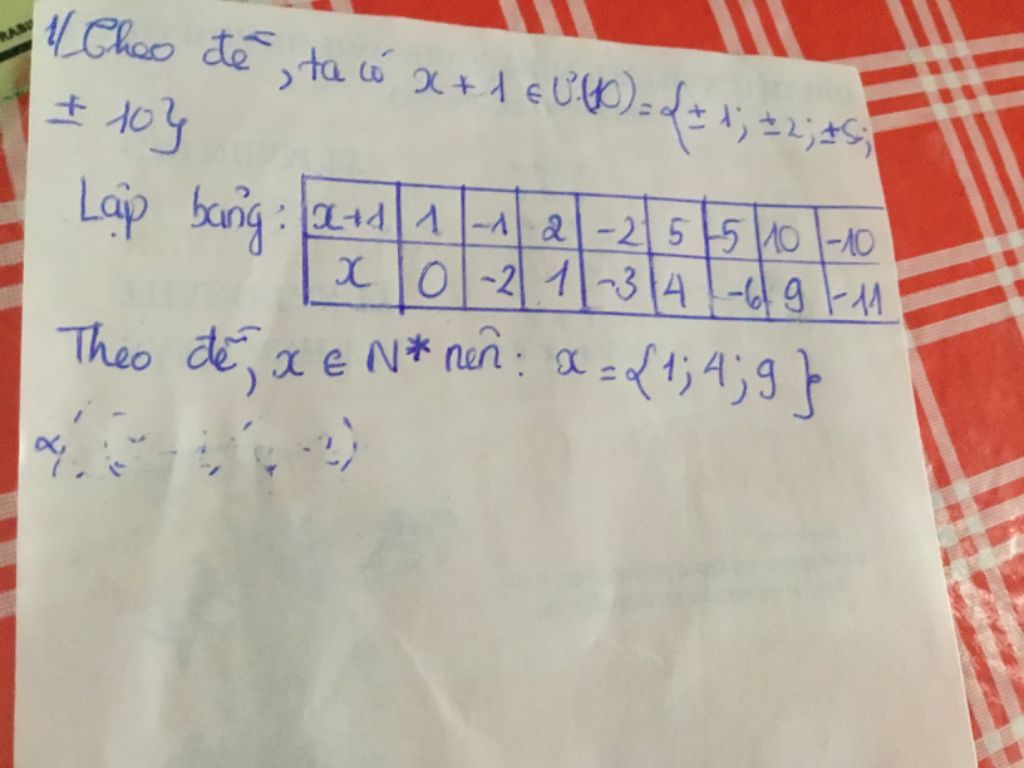 1/ Theo đề, ta có x + 1 ∈ Ư(10) = {± 1; ± 2; ± 5;
± 10}
Lập bảng: x+1 1 -1 2 -2 5 -5 10 -10
x 0 -2 1 -3 4 -6 9 -11
Theo đề, x ∈ N* nên: x = {1; 4; 9}